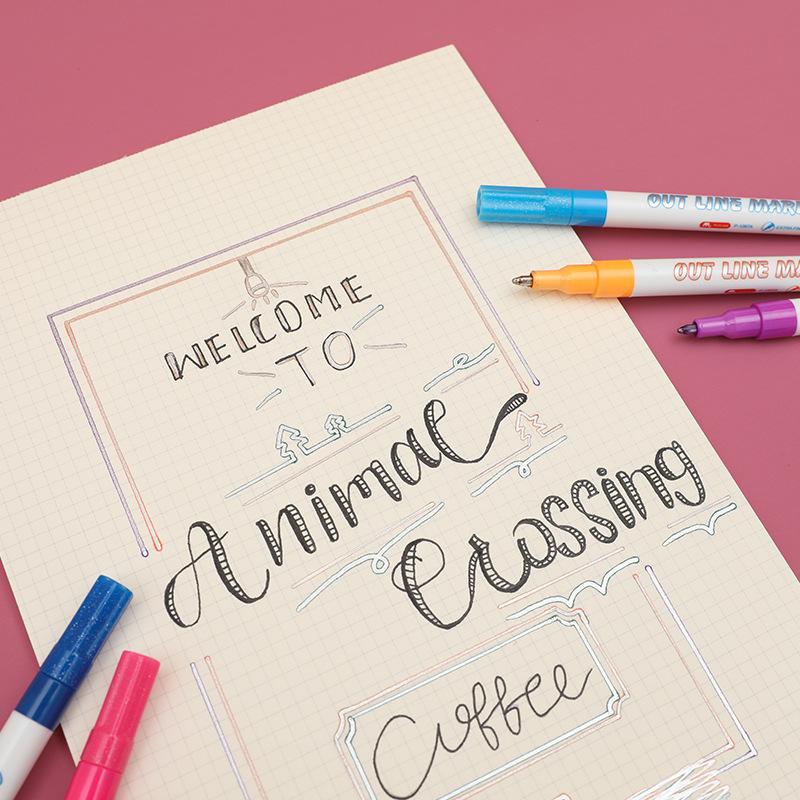 WELCOME
TO
Animal
Crossing
Coffee
OUT LINE MAR
OUT LINE MA